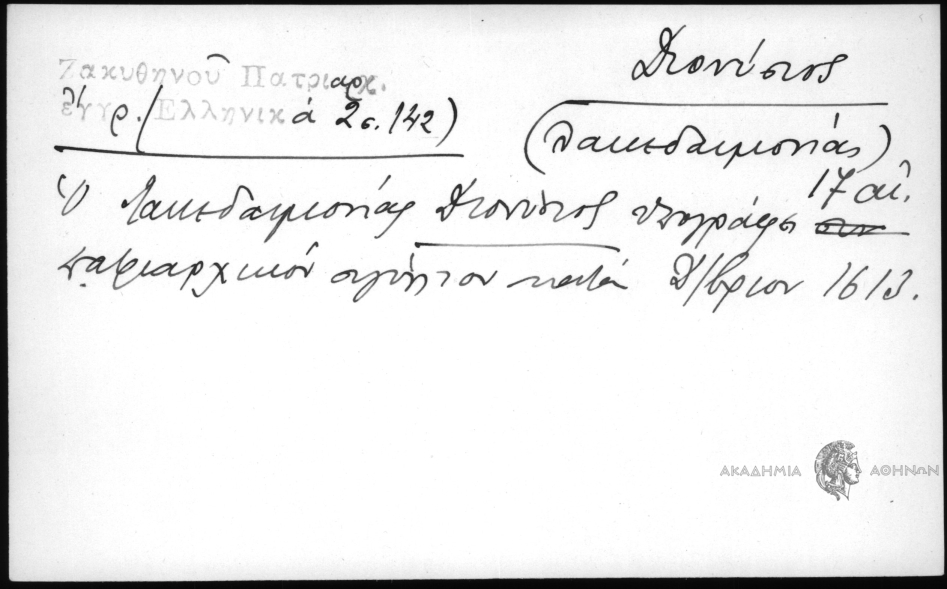 Ζακυθηνοῦ Πατριαρχ.
ἔγγρ. (Ἑλληνικά 2 σ. 142)
Διονύσιος
(Λακεδαιμονίας)
17 αἰ.
Ὁ Λακεδαιμονίας Διονύσιος ὑπογράφει
πατριαρχικόν σιγίλλιον κατά Δ/βριον 1613.
ΑΚΑΔΗΜΙΑ ΑΘΗΝΩΝ